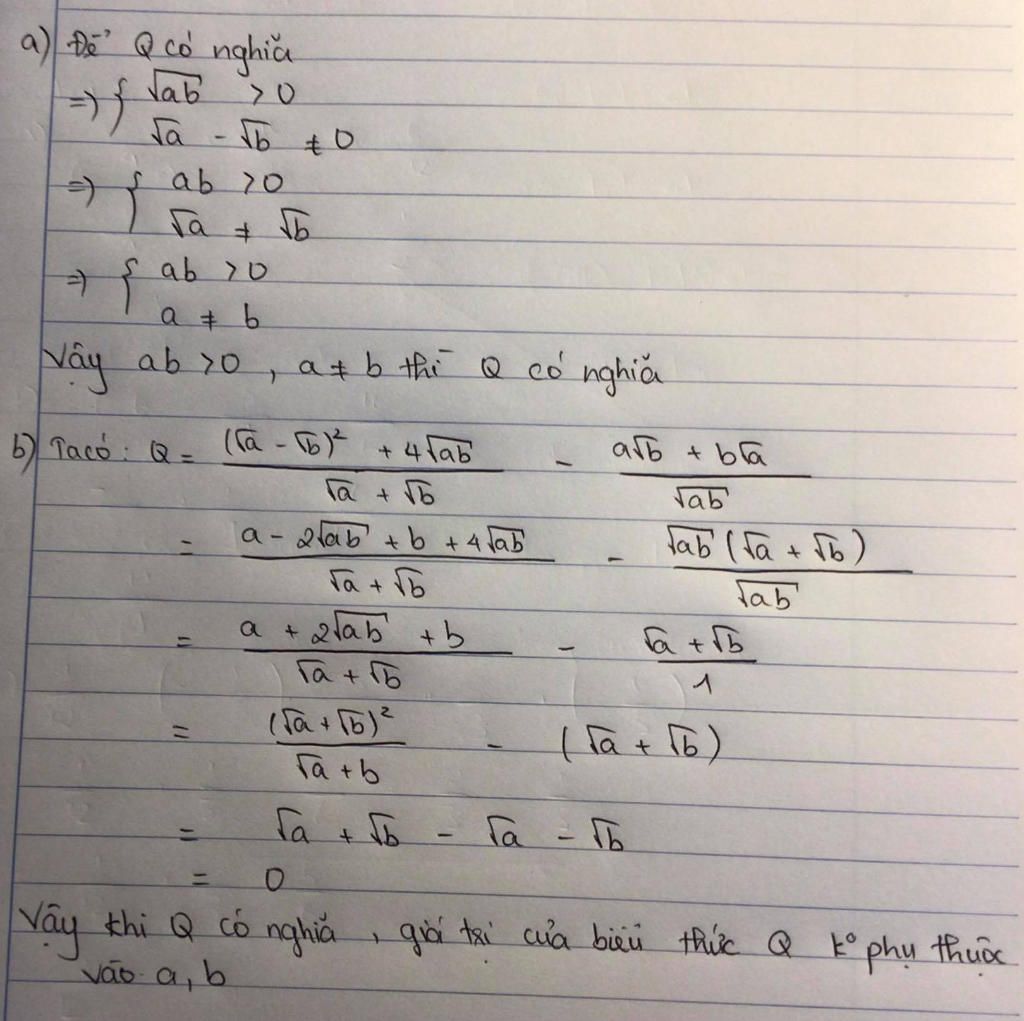 a) Để Q có nghĩa
=> { √ab > 0
√a - √b ≠ 0
=> { ab > 0
√a ≠ √b
=> { ab > 0
a ≠ b
Vậy ab > 0, a ≠ b thì Q có nghĩa
b) Ta có: Q = ((√a - √b)² + 4√ab)/(√a + √b) - (a√b + b√a)/√ab
= (a - 2√ab + b + 4√ab)/(√a + √b) - √ab(√a + √b)/√ab
= (a + 2√ab + b)/(√a + √b) - (√a + √b)/1
= (√a + √b)²/(√a + b) - (√a + √b)
= √a + √b - √a - √b
= 0
Vậy khi Q có nghĩa, giá trị của biểu thức Q k° phụ thuộc
vào a, b